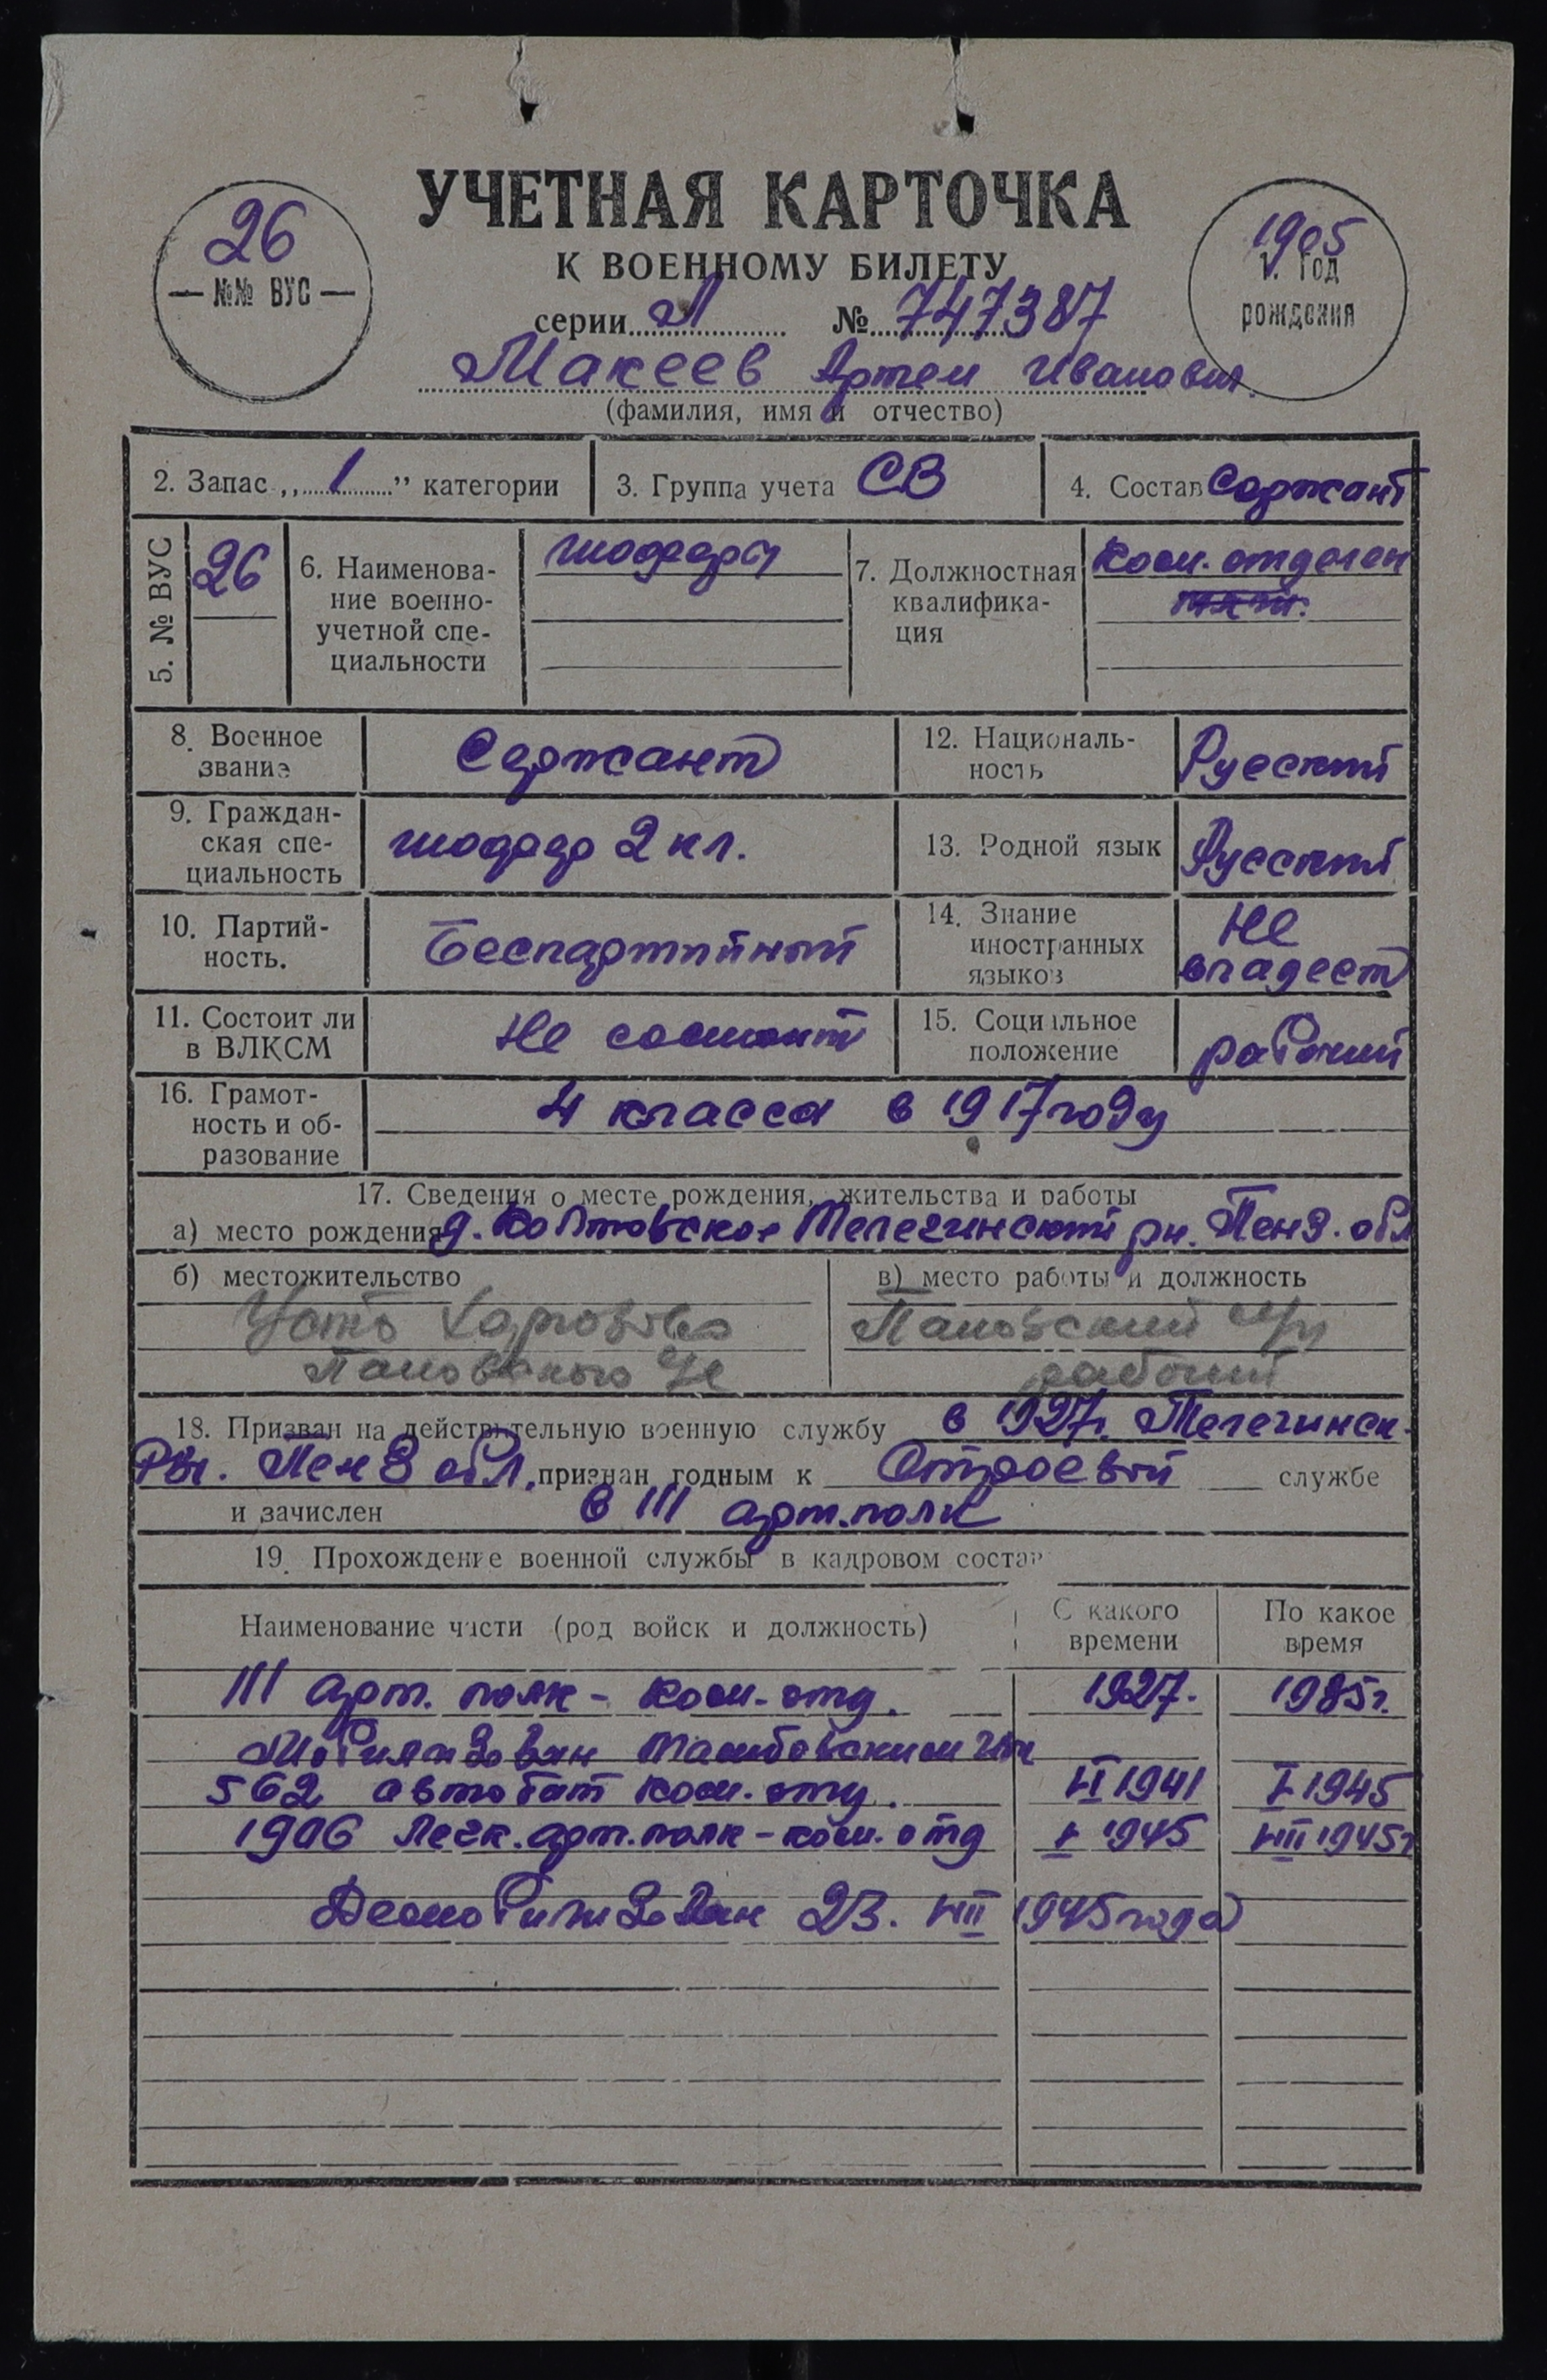 УЧЕТНАЯ КАРТОЧКА
К ВОЕННОМУ БИЛЕТУ
26
— №№ ВУС —
1905
1. Год
рождения
серии Л № 747387
Макеев Артем Иванович
(фамилия, имя и отчество)
2. Запас „ 1 ” категории
3. Группа учета СВ
4. Состав Сержант
5. № ВУС
26
6. Наименова-
ние военно-
учетной спе-
циальности
шофера
7. Должностная
квалифика-
ция
Ком. отделен
8. Военное
звание
Сержант
12. Националь-
ность
Русский
9. Граждан-
ская спе-
циальность
шофер 2 кл.
13. Родной язык
Русский
10. Партий-
ность.
Беспартийный
14. Знание
иностранных
языков
Не
владеет
11. Состоит ли
в ВЛКСМ
Не состоит
15. Социальное
положение
рабочий
16. Грамот-
ность и об-
разование
4 класса в 1917 году
17. Сведения о месте рождения, жительства и работы
а) место рождения д. Телегинский рн. Пенз. обл
б) местожительство
Усть
в) место работы и должность
рабочий
18. Призван на действительную военную службу в 1927г. Телегинск.
Рвк. Пенз обл. признан годным к Строевой службе
и зачислен в III арт. полк
19. Прохождение военной службы в кадровом состав
Наименование части (род войск и должность)
С какого
времени
По какое
время
III арт. полк - Ком. отд. 1927. 1935г.
Мобилизован Тамбовским
562 автобат Ком. отд. VI 1941 I 1945
1906 Легк. арт. полк - ком. отд I 1945 VIII 1945г
Демобилизован 23. VIII 1945 года